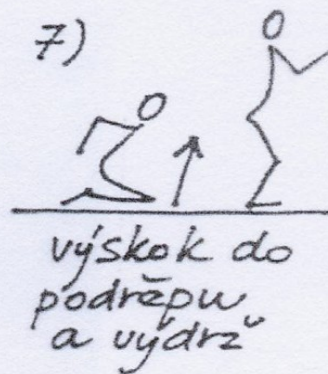 7)
výskok do
podřepu
a výdrž